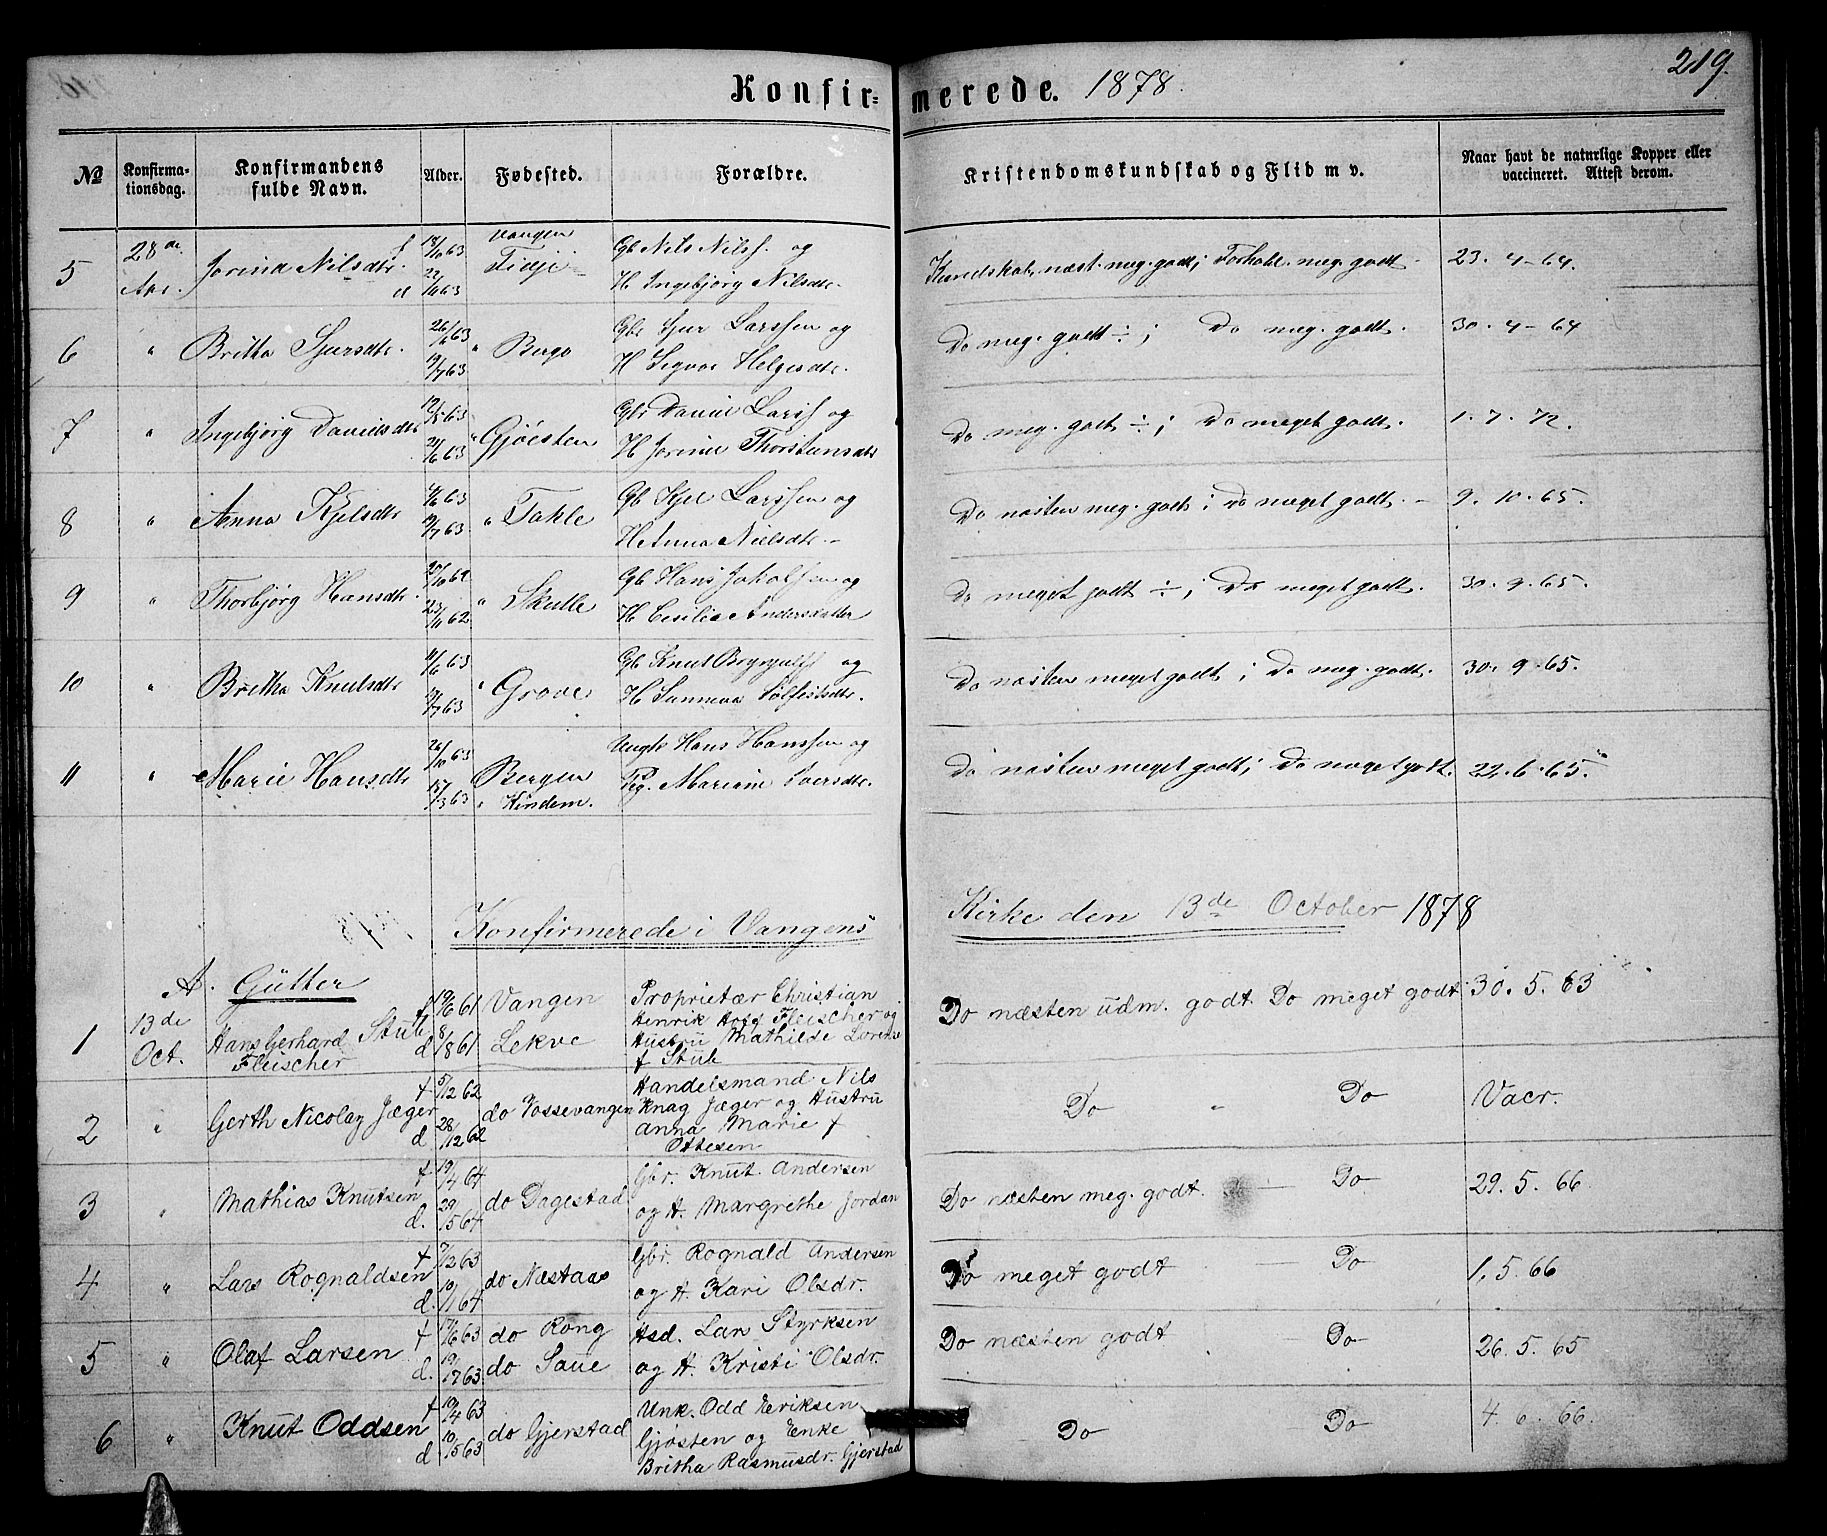 219.
Konfir= merede. 1878.
№ Konfirma-tionsdag. Konfirmandens fulde Navn. Alder. Fødested. Forældre. Kristendomskundskab og Flid m v. Naar havt de naturlige Kopper eller vaccineret. Attest derom.
5 28de Apr. Jorina Nilsdtr. f 18/10 63 d 22/11 63 Vangen Tvejt Gb Nils Nilss. og H Ingebjørg Nilsdtr. Kundskab næst. meg. godt; Forhold. meg. godt 23. 4-64.
6 " Britha Sjursdtr. 26/6 63 19/7 63 " Berge Gbr Sjur Larssen og H Sigvor Helgesdtr. Do meg. godt ÷; Do meg. godt. 30. 4-64
7 " Ingebjørg Davidsdtr 19/5 63 21/6 63 " Gjøesten Gbr David Larss og H Jorina Thorstensdtr Do meg. godt ÷; Do meget godt. 1. 7. 72.
8 " Anna Kjelsdtr 4/6 63 19/7 63 " Takle Gb Kjel Larssen og H Anna Nielsdtr. Do næsten meg. godt; Do meget godt. - 9. 10. 65.
9 " Thorbjørg Hansdtr. 30/10 62 23/11 62 " Skulle Gb Hans Jakobsen og H Cecilia Andersdatter Do meget godt ÷; Do meget godt. 30. 9. 65.
10 " Britha Knutsdtr 11/6 63 19/7 63 " Grove Gb Knut Brynjulfs og H Sunneva Solfestsdtr. Do næsten meget godt; Do meg. godt. 30. 9. 65.
11 " Marie Hansdtr 26/10 63 15/3 63 Bergen " Kindem. Ungk Hans Hanssen og Pig. Mariane Iversdtr. Do næsten meget godt; Do meget godt. 22. 6. 65.
Konfirmerede i Vangens Kirke den 13de October 1878
A. Gutter
1 13de Oct. Hans Gerhard Stub Fleischer f 19/6 61 d 8/8 61 Vangen Lekve Proprietær Christian Henrik Hoff Fleischer og Hustru Mathilde Lorense f Stub Do næsten udm. godt Do meget godt 30. 5. 63
2 " Gerth Nicolay Jæger f 5/12 62 d 28/12 62 do Vossevangen Handelsmand Nils Knag Jæger og Hustru Anna Marie f Ottesen Do " Do Vacr.
3 " Mathias Knutsen f 19/4 64 d. 29/5 64 do Dagestad Gbr. Knut Andersen og H. Margrethe Jordan Do næsten meg. godt. — Do 29. 5. 66
4 " Lars Rognaldsen f 7/12 63 d. 10/1 64 do Næstaas Gbr. Rognald Andersen og H. Kari Olsdr. Do meget godt — Do 1. 5. 66
5 " Olaf Larsen f 17/6 63 d. 19/7 63 do Rong do Saue Hsd. Lars Styrksen og H. Kristi Olsdr. Do næsten godt Do 26. 5. 65
6 " Knut Oddsen f 19/4 63 d 10/5 63 do Gjerstad Unk. Odd Eriksen Gjøsten og Enke Britha Rasmusdr. Gjerstad Do Do 4. 6. 66.